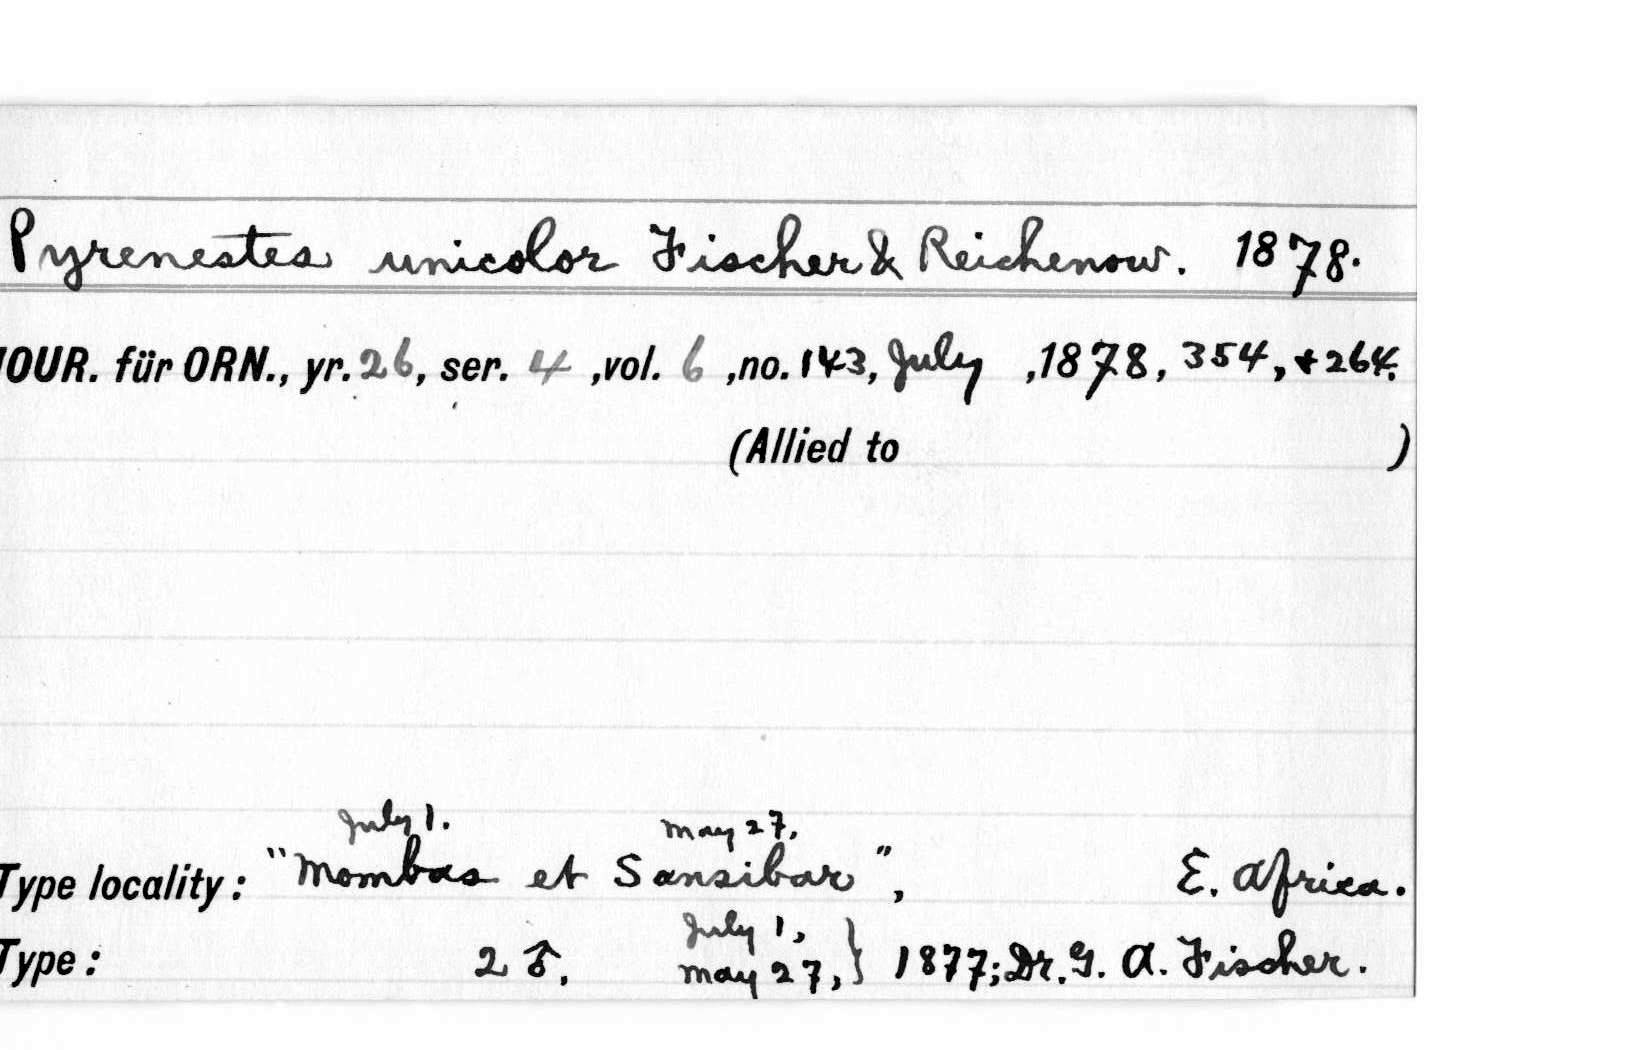 Pyrenestes unicolor Fischer & Reichenow. 1878.
JOUR. für ORN., yr. 26, ser. 4 ,vol. 6 ,no. 143, July ,1878, 354, + 264.
(Allied to )
July 1. May 27.
Type locality: "Mombas et Sansibar", E. Africa.
July 1,
Type: 2 ♂, May 27,} 1877; Dr. G. A. Fischer.